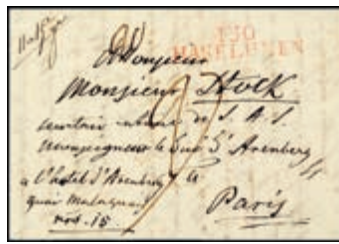 130
HASELUNEN
A Monsieur
Monsieur Stock
secretaire intime de S. A. S
monseigneur le Duc d'Arenberg
a l'hotel d'Arenberg
quai Malaquai
nro. 15.
Paris